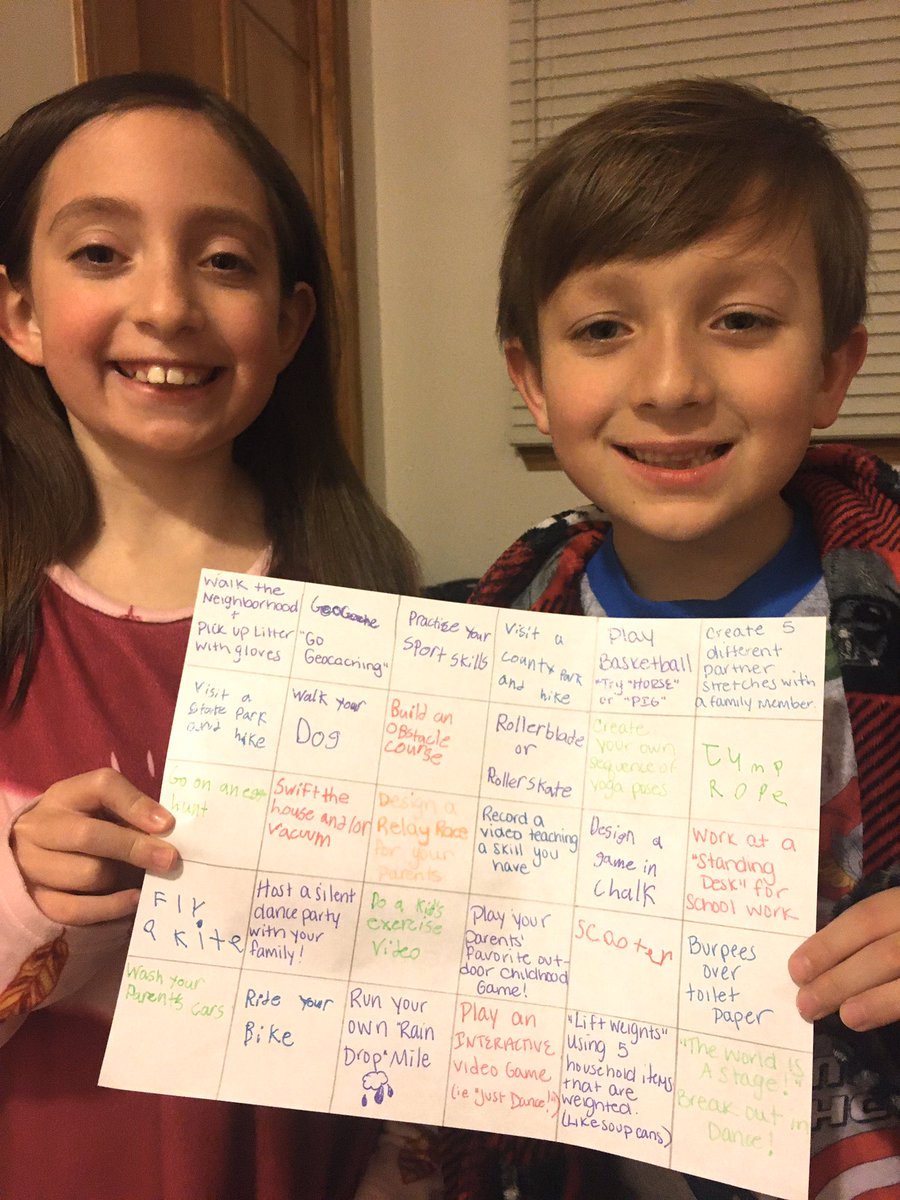 Walk the
Neighborhood
+
Pick up Litter
with gloves
"Go
Geocaching"
Practise your
Sport Skills
Visit a
county Park
and hike
Play
Basketball
"Try "HORSE"
or "PIG"
Create 5
different
partner
stretches with
a family member.
Visit a
State Park
and hike
Walk your
Dog
Build an
Obstacle
course
Rollerblade
or
Rollerskate
Create
your own
sequence of
yoga poses
Jump
Rope
Go on an
hunt
Swift the
house and/or
vacuum
Design a
Relay Race
for your
Parents
Record a
video teaching
a skill you
have
Design a
game in
Chalk
Work at a
"Standing
Desk" for
School work
Fly
a kite
Host a silent
dance party
with your
family!
Do a Kid's
exercise
video
Play your
Parents'
Favorite out-
door Childhood
Game!
Scooter
Burpees
over
toilet
paper
Wash your
Parents cars
Ride your
Bike
Run your
own "Rain
Drop" Mile
Play an
INTERACTIVE
video Game
(ie "Just Dance!")
"Lift Weights"
Using 5
household items
that are
weighted.
(Like soup cans)
"The World is
A Stage!"
Break out in
Dance!